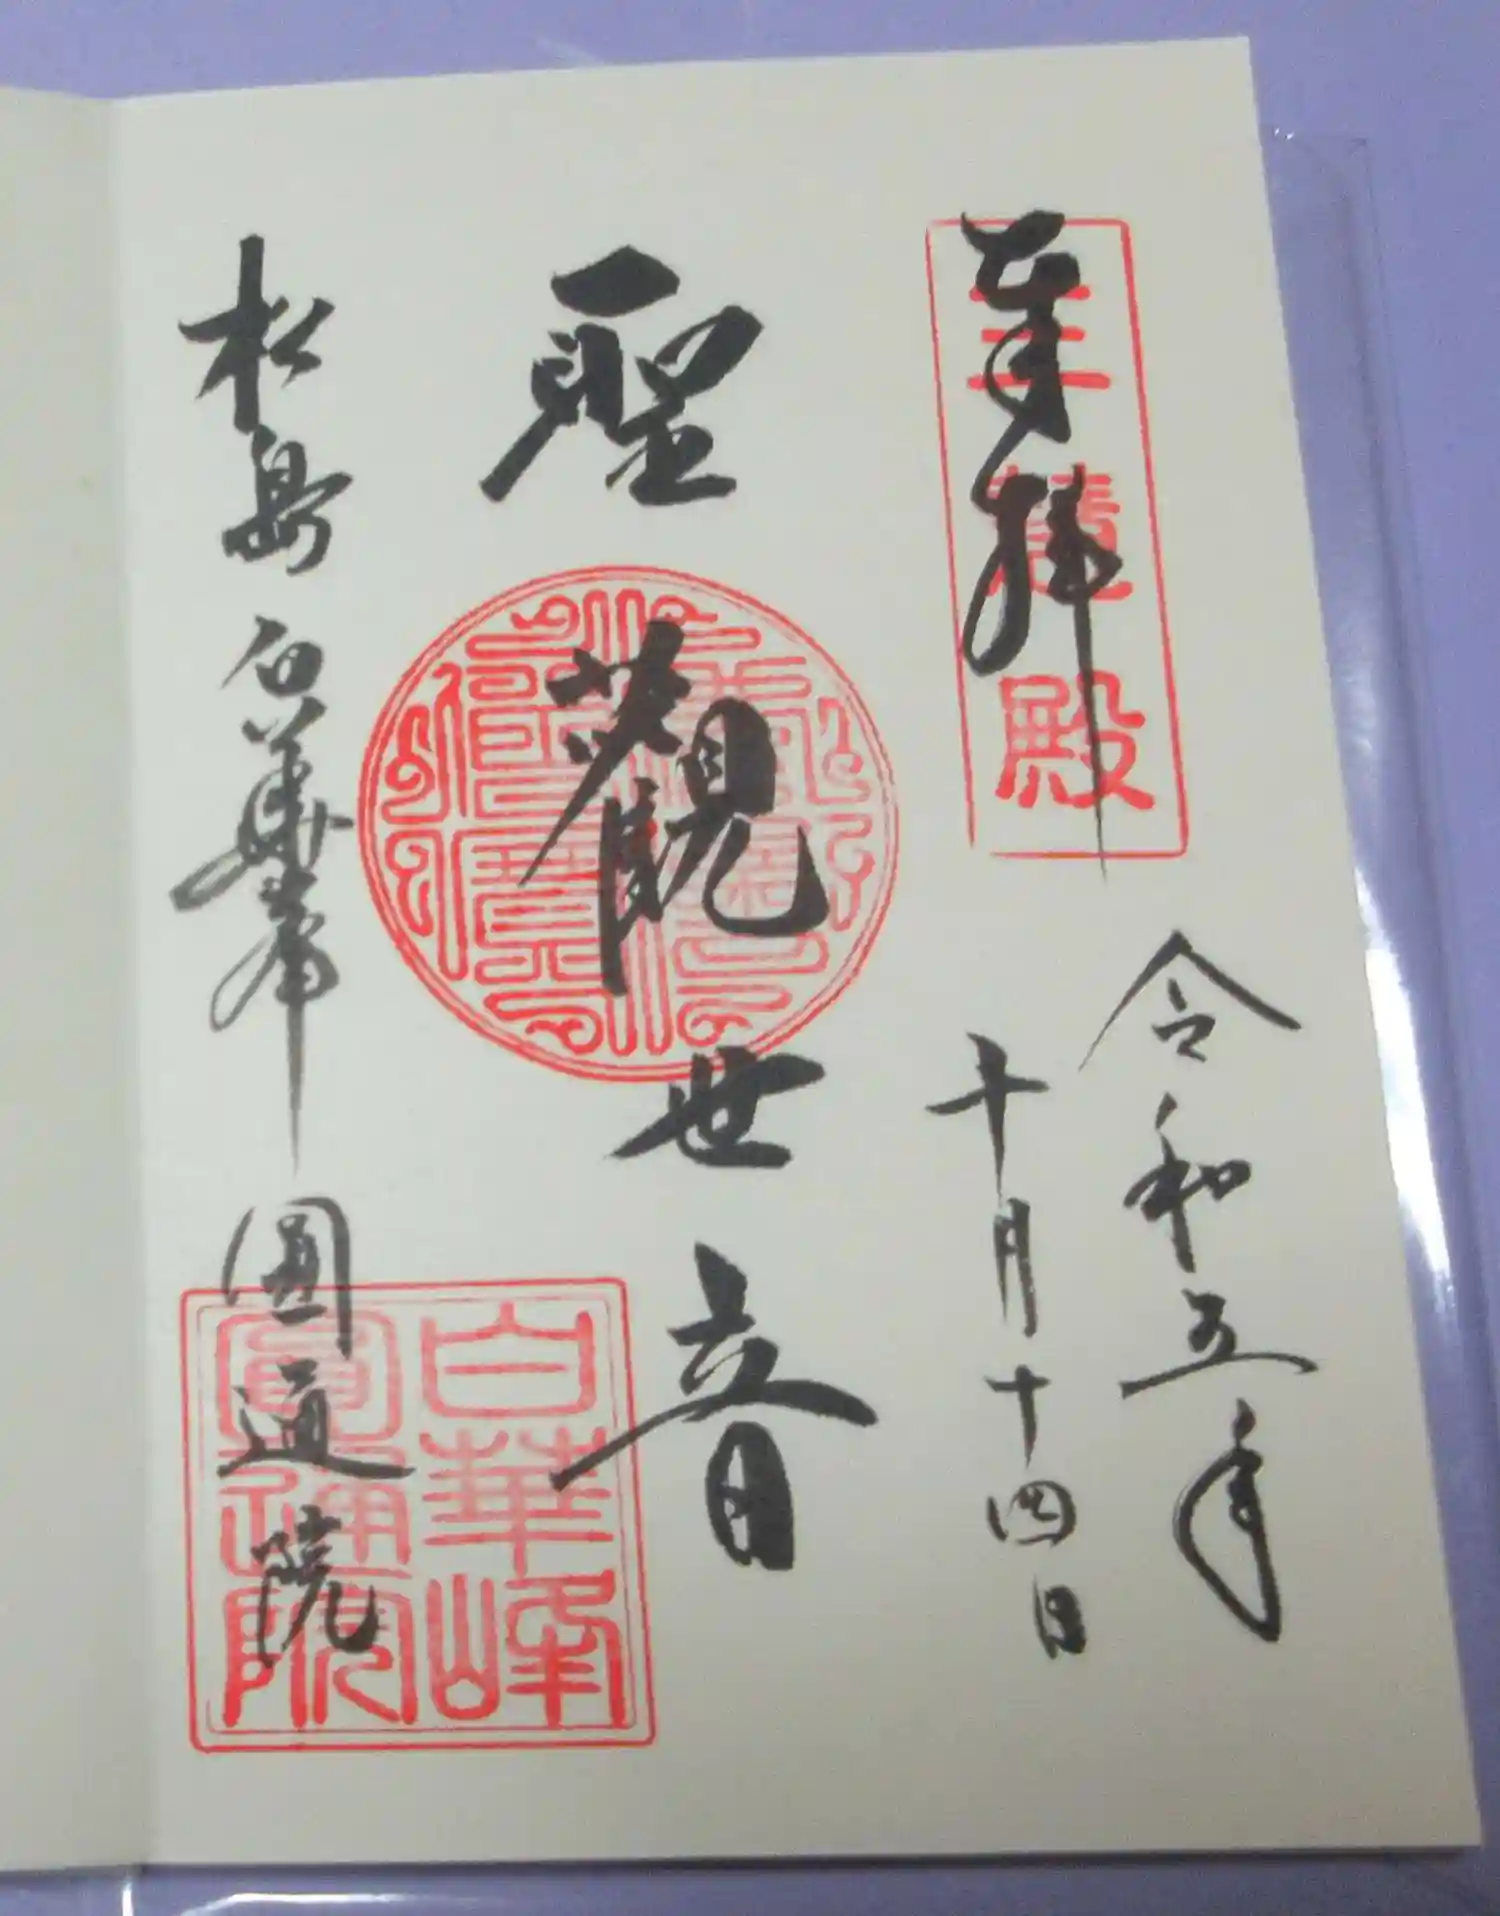 奉拝
三慧殿
令和五年
十月十四日
聖觀世音
松島 白華峯 圓通院
白華峰
圓通院